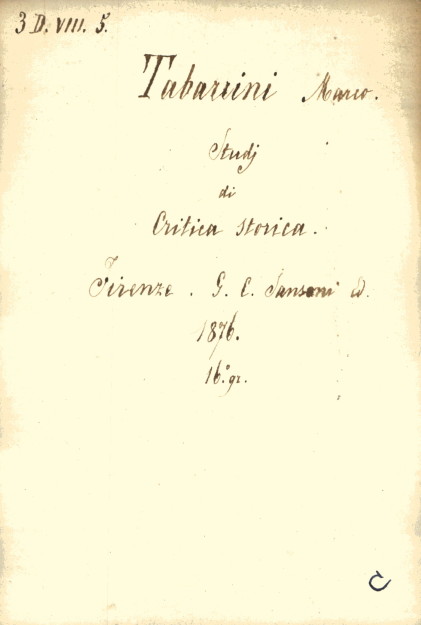 3 D. VIII. 5.
Tabarrini Marco.
Studj
di
Critica storica.
Firenze. G. C. Sansoni ed.
1876.
16.° gr.
C